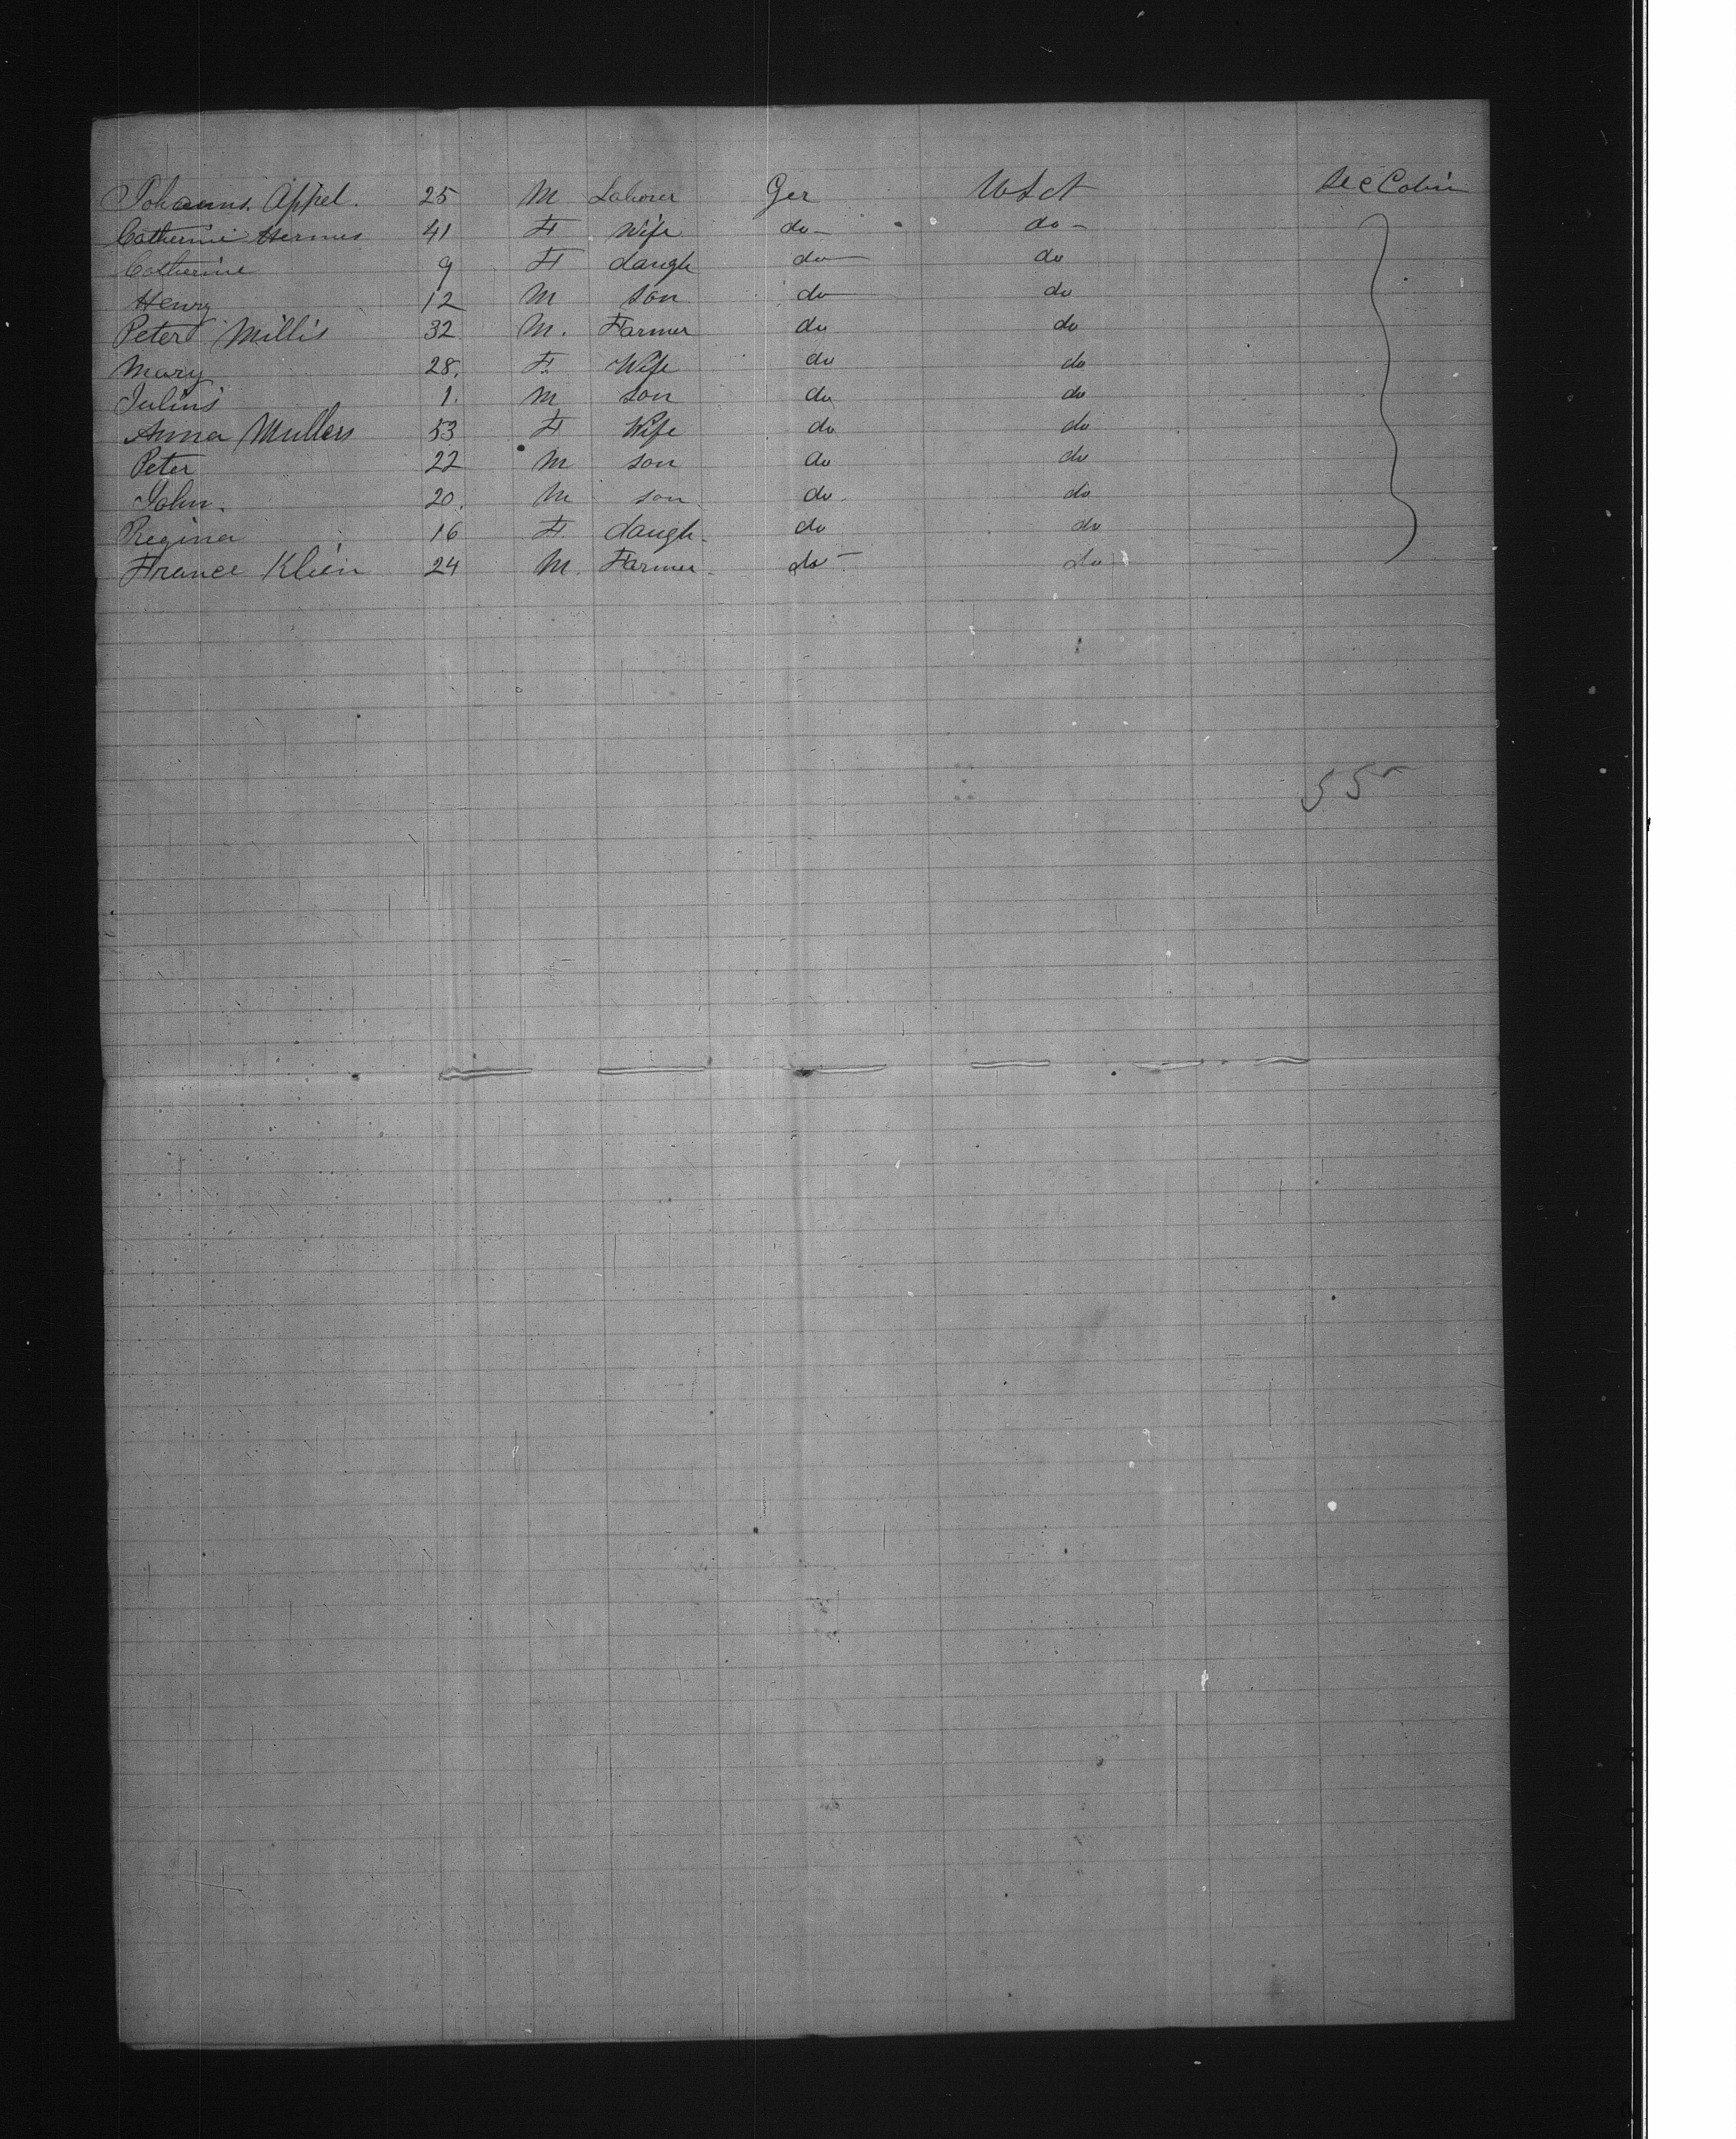 Johanns. Appel. 25 M Laborer Ger U S A Sec Cabin
Catherine Hermes 41 F Wife do - do -
Catherine 9 F daugh do do
Henry 12 M son do do
Peter Millis 32 M. Farmer do do
Mary 28. F. Wife do do
Julius 1. M son do do
Anna Mullers 53 F Wife do do
Peter 22 M son do do
John. 20. M son do. do
Regina 16 F. daugh. do do
France Klein 24 M. Farmer. do - do
55